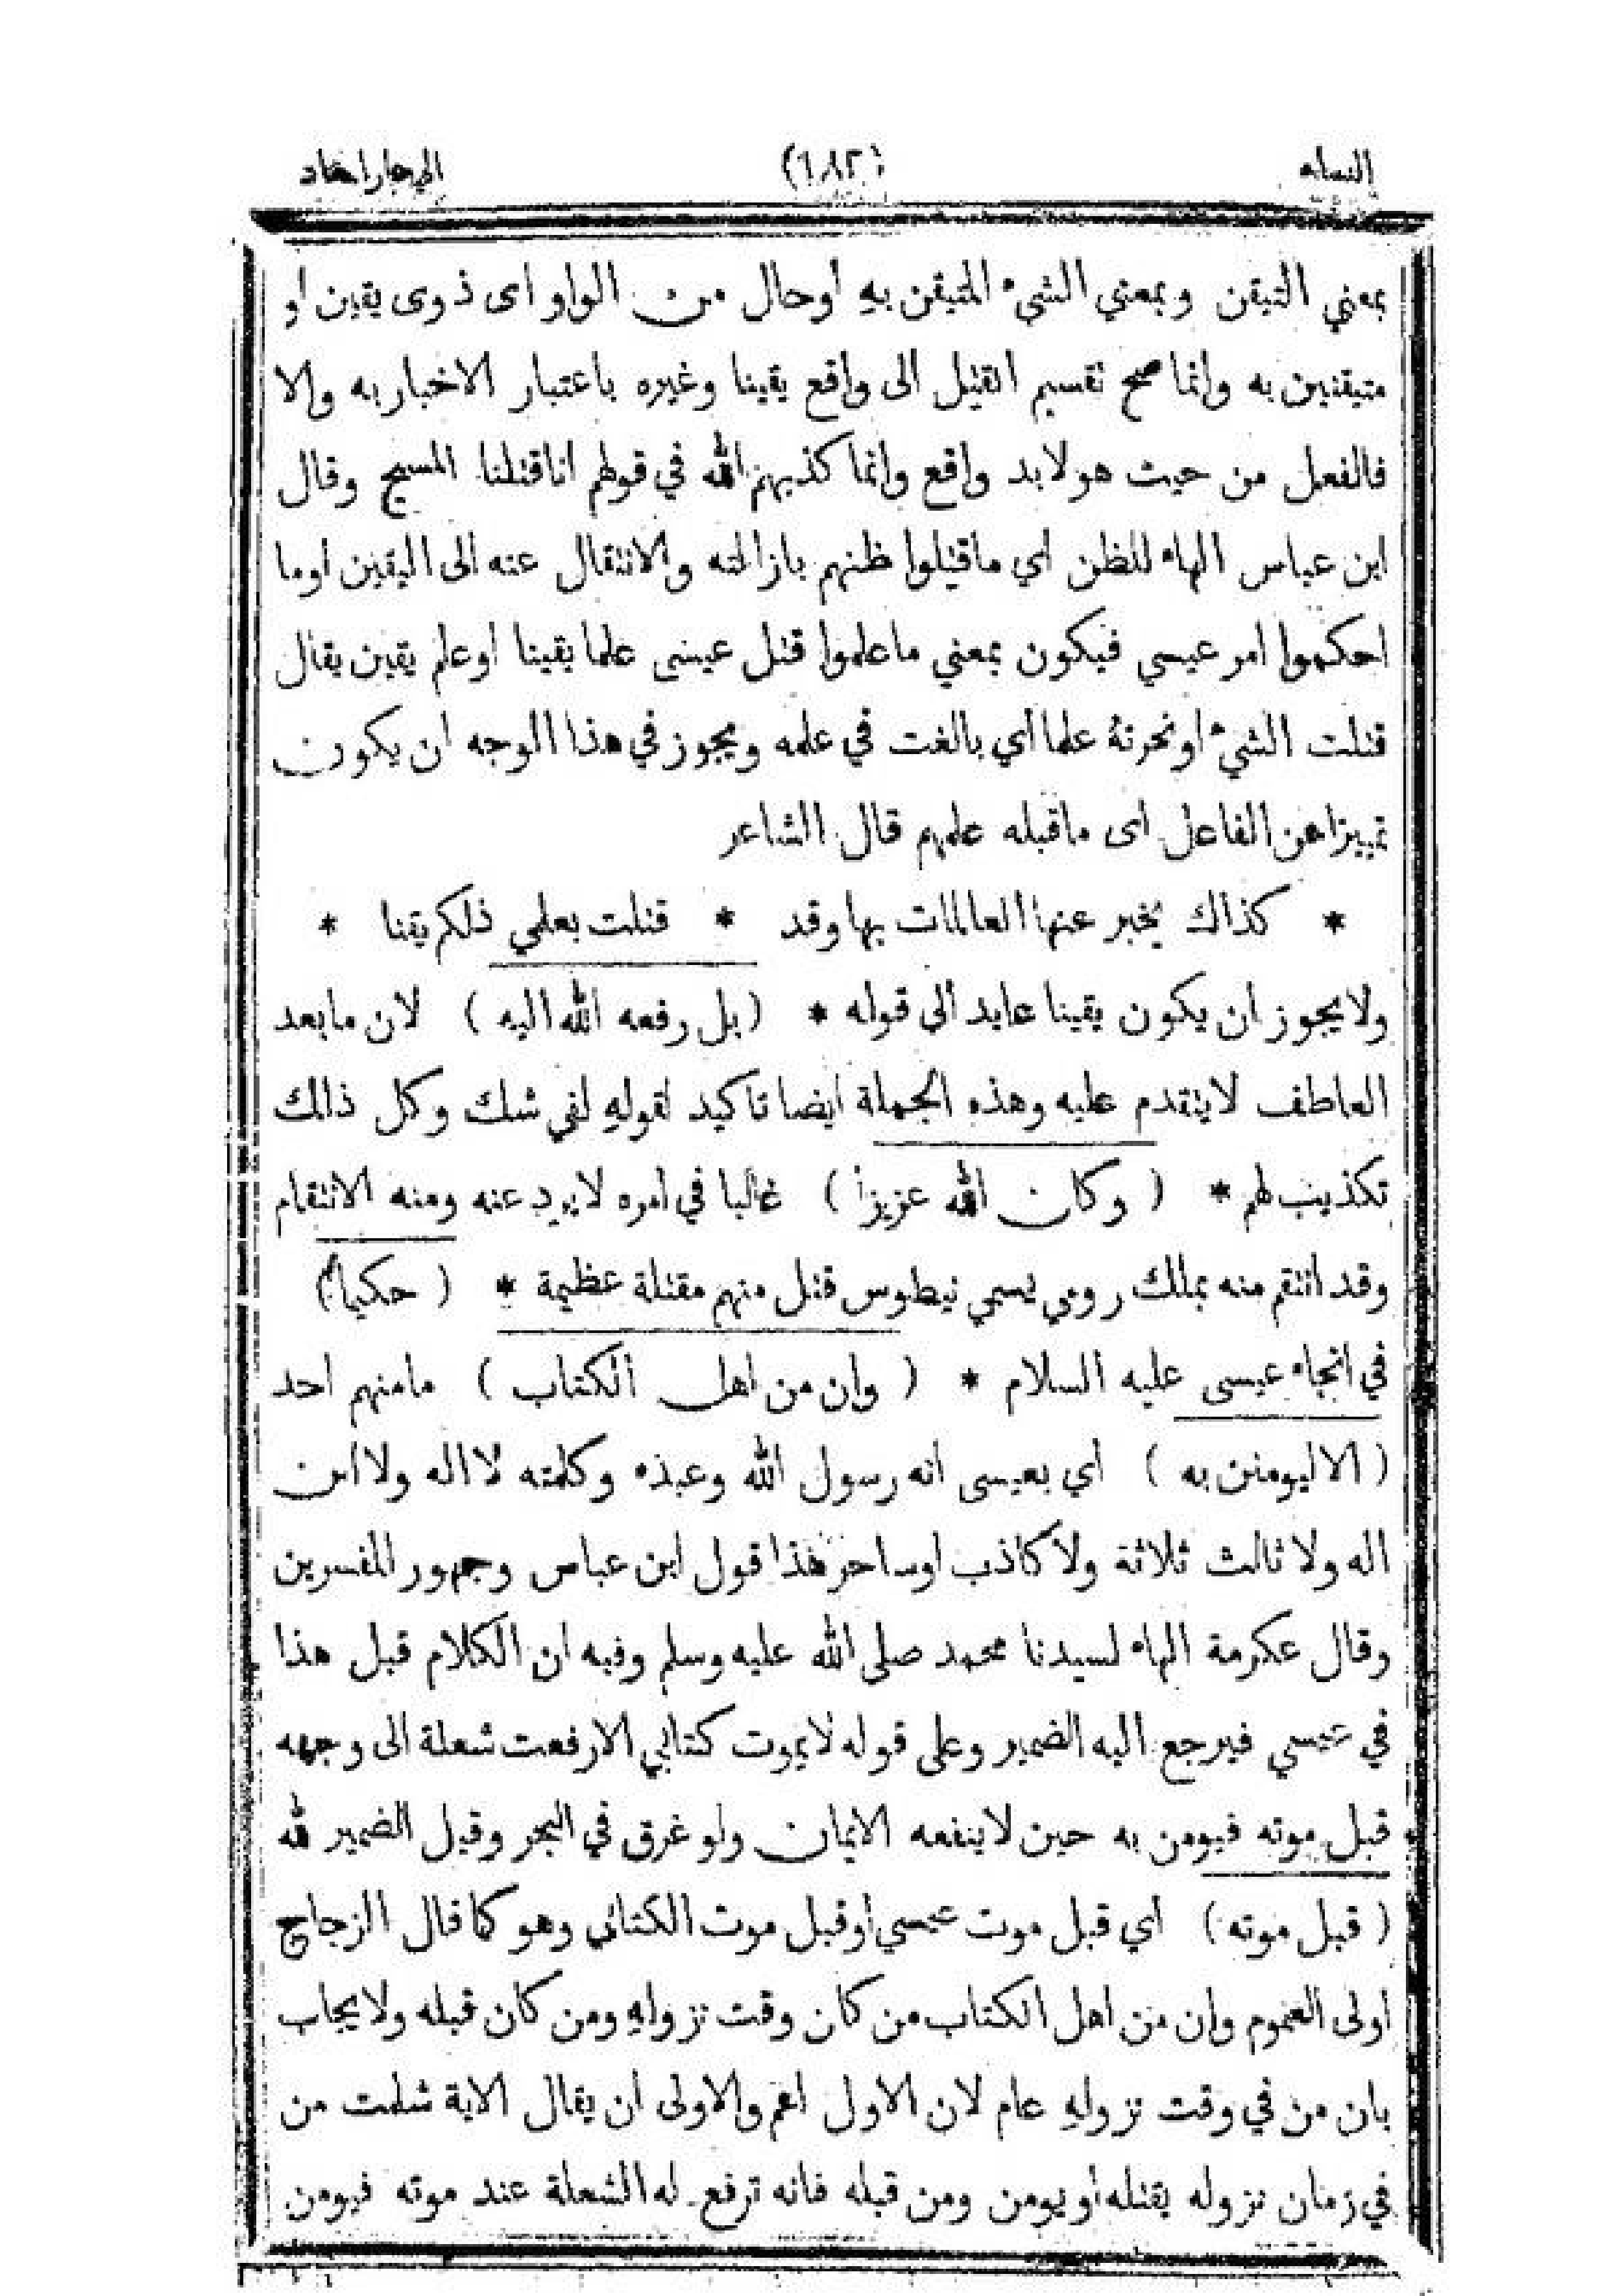 النساء
(١٨٢)
بمعني التيقن وبمعني الشيء المتيقن به أوحال من الواو اى ذوى يقين او
متيقنين به وانما صح تقسيم القتل الى واقع يقينا وغيره باعتبار الاخبار به والا
فالفعل من حيث هو لابد واقع وانما كذبهم الله في قولهم انا قتلنا المسيح وقال
ابن عباس الهاء للظن اي ماقتلوا ظنهم بازالته والانتقال عنه الى اليقين اوما
احكموا امر عيسي فيكون بمعني ماعلموا قتل عيسى علما يقينا اوعلم يقين يقال
قتلت الشيء اونحرته علما أي بالغت في علمه ويجوز في هذا الوجه ان يكون
تمييزا عن الفاعل اى ماقبله علمهم قال الشاعر
* كذاك يخبر عنها العالمات بها وقد * قتلت بعلمي ذلكم يقنا *
ولايجوز أن يكون يقينا عايد الى قوله * (بل رفعه الله اليه) لان مابعد
العاطف لايتقدم عليه وهذه الجملة ايضا تاكيد لقوله لفي شك وكل ذالك
تكذيب لهم * (وكان الله عزيزا) غالبا في امره لايرد عنه ومنه الانتقام
وقد انتقم منه بملك رومي يسمي نيطوس قتل منهم مقتلة عظيمة * (حكيما)
في انجاء عيسى عليه السلام * (وان من اهل الكتاب) مامنهم احد
(الا ليومنن به) أي بعيسى انه رسول الله وعبده وكلمته لا اله ولا ابن
اله ولا ثالث ثلاثة ولا كاذب اوساحر هذا قول ابن عباس وجمهور المفسرين
وقال عكرمة الهاء لسيدنا محمد صلى الله عليه وسلم وفيه ان الكلام قبل هذا
في عيسي فيرجع اليه الضمير وعلى قوله لايموت كتابي الا رفعت شعلة الى وجهه
قبل موته فيومن به حين لاينفعه الايمان ولو غرق في البحر وقيل الضمير لله
(قبل موته) أي قبل موت عيسي أوقبل موت الكتابى وهو كما قال الزجاج
اولى العموم وان من اهل الكتاب من كان وقت نزوله ومن كان قبله ولايجاب
بان من في وقت نزوله عام لان الاول اعم والاولى ان يقال الاية شملت من
في زمان نزوله يقتله أويومن ومن قبله فانه ترفع له الشعلة عند موته فيومن